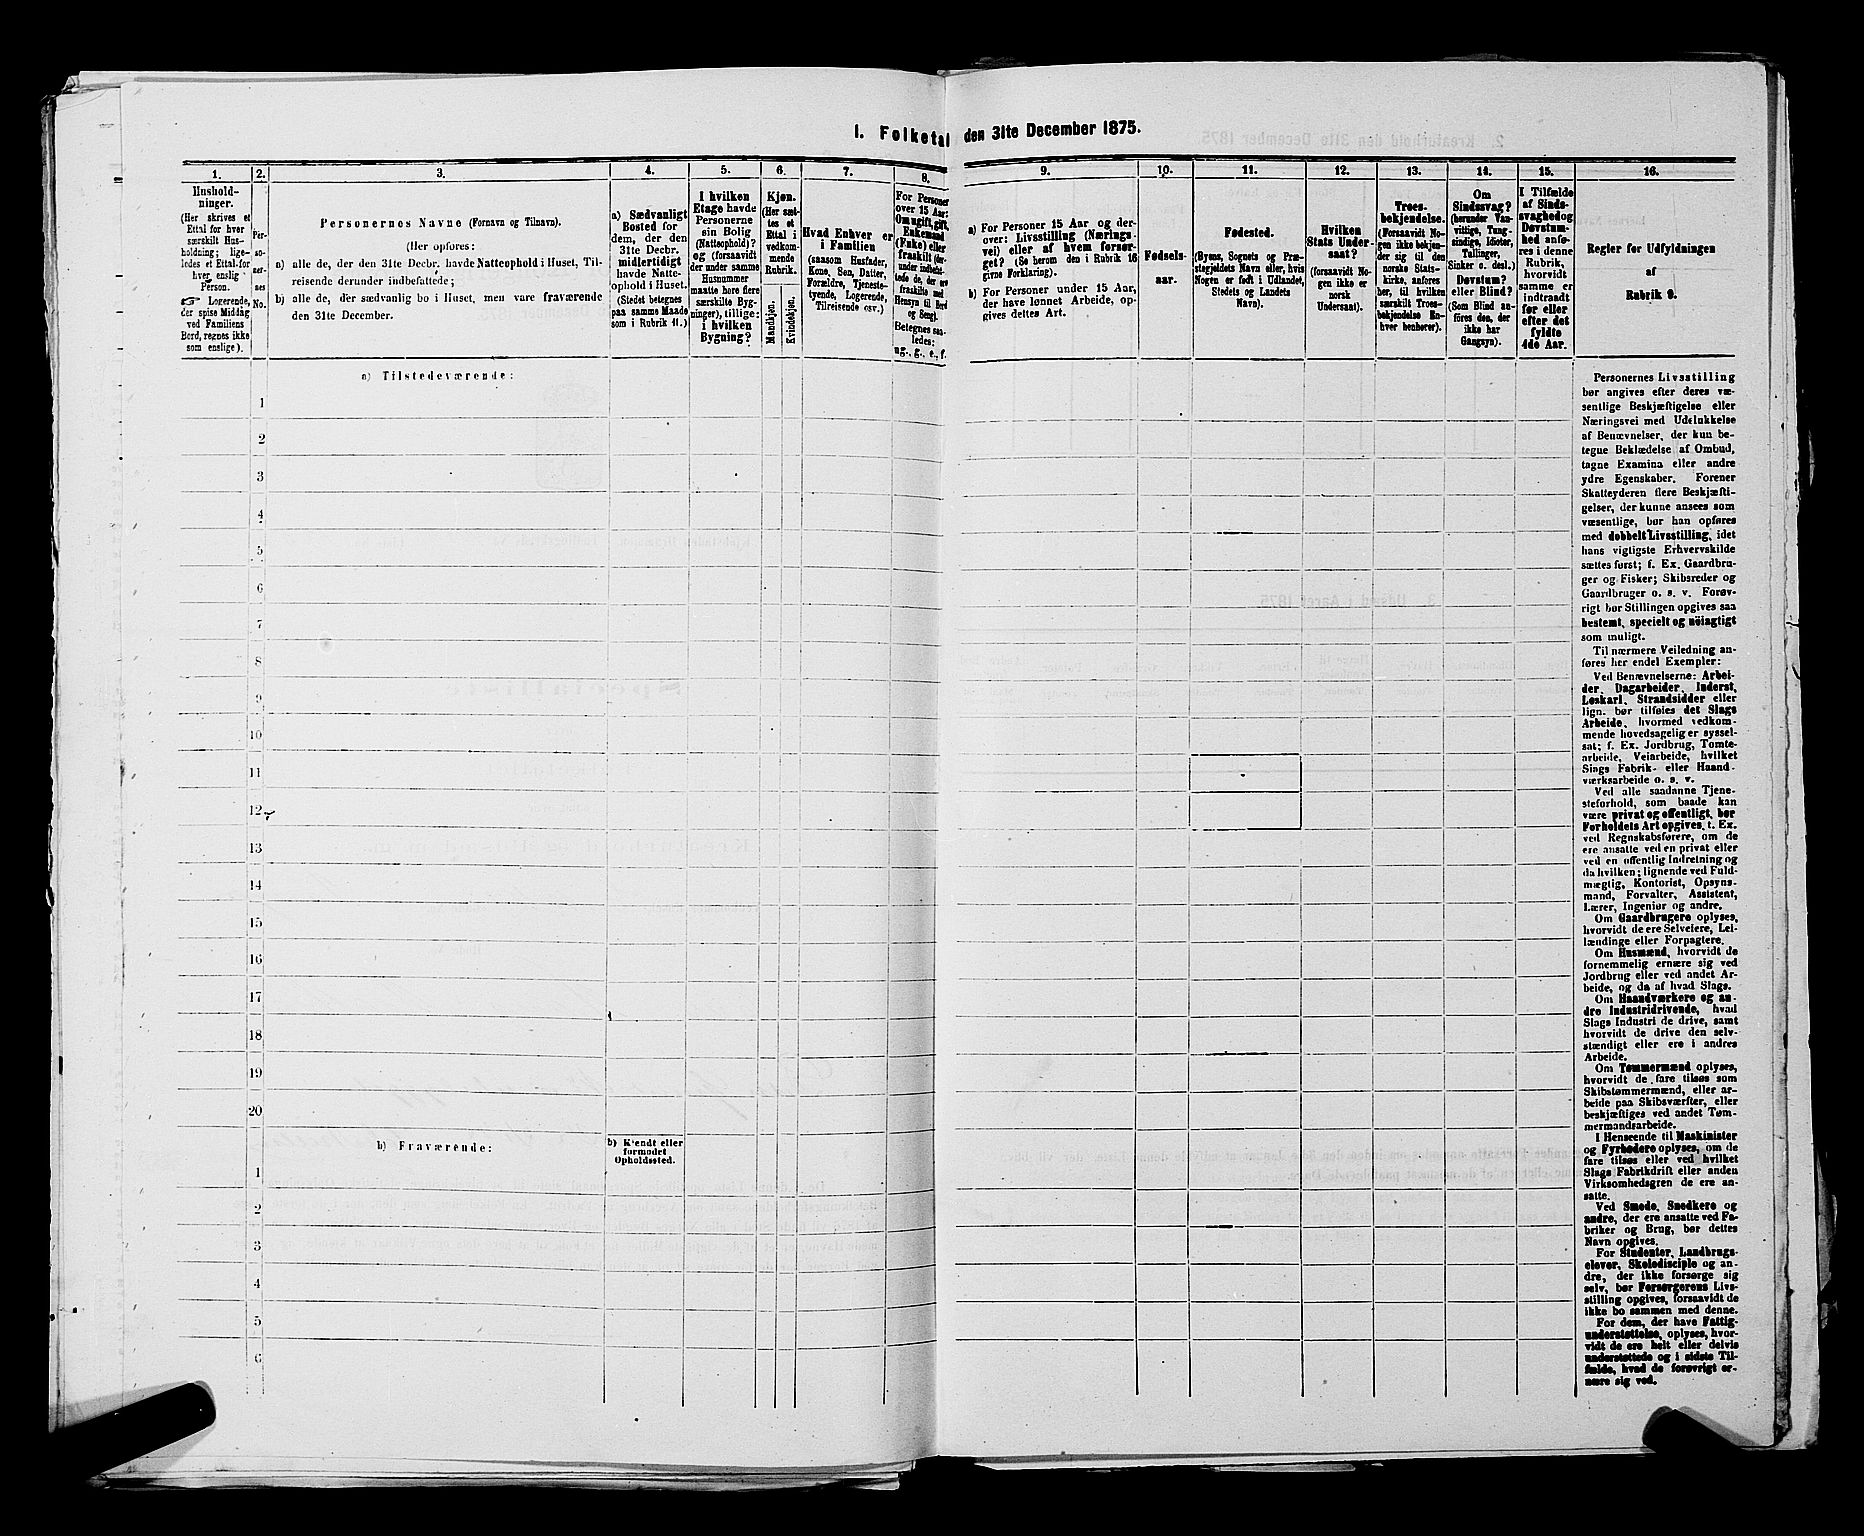 1. Folketal den 31te December 1875.
1.
Hushold-
ninger.
(Her skrives et
Ettal for hver
særskilt Hus-
holdning; lige-
ledes et Ettal for
hver, enslig
Person.
☞ Logerende,
der spise Middag
ved Familiens
Bord, regnes ikke
som enslige).
2.
Per-
so-
ner-
nes
No.
3.
Personernes Navne (Fornavn og Tilnavn).
(Her opføres:
a) alle de, der den 31te Decbr. havde Natteophold i Huset, Til-
reisende derunder indbefattede;
b) alle de, der sædvanlig bo i Huset, men vare fraværende
den 31te December.
4.
a) Sædvanligt
Bosted for
dem, der den
31te Decbr.
midlertidigt
havde Natte-
ophold i Huset.
(Stedet betegnes
paa samme Maade
som i Rubrik 11.)
5.
I hvilken
Etage havde
Personerne
sin Bolig
(Natteophold)?
og (forsaavidt
der under samme
Husnummer
maatte høre flere
særskilte Byg-
ninger), tillige:
i hvilken
Bygning?
6.
Kjøn.
(Her sæt-
tes et
Ettal i
vedkom-
mende
Rubrik.
Mandkjøn.
Kvindekjøn.
7.
Hvad Enhver er
i Familien
(saasom Husfader,
Kone, Søn, Datter,
Forældre, Tjeneste-
tyende, Logerende,
Tilreisende osv.)
8.
For Personer
over 15 Aar:
Om ugift, gift,
Enkemand
(Enke) eller
fraskilt (der-
under indbefat-
tede de, der ere
fraskilte med
Hensyn til Bord
og Seng).
Betegnes saa-
ledes:
ug., g., e., f.
9.
a) For Personer 15 Aar og der-
over: Livsstilling (Nærings-
vei) eller af hvem forsør-
get? (Se herom den i Rubrik 16
givne Forklaring).
b) For Personer under 15 Aar,
der have lønnet Arbeide, op-
gives dettes Art.
10.
Fødsels-
aar.
11.
Fødested.
(Byens, Sognets og Præ-
stegjeldets Navn eller, hvis
Nogen er født i Udlandet,
Stedets og Landets
Navn).
12.
Hvilken
Stats Under-
saat?
(forsaavidt No-
gen ikke er
norsk
Undersaat).
13.
Troes-
bekjendelse.
(Forsaavidt No-
gen ikke bekjen-
der sig til den
norske Stats-
kirke, anføres
her, til hvilken
særskilt Troes-
bekjendelse En-
hver henhører).
14.
Om
Sindssvag?
(herunder Van-
vittige, Tung-
sindige, Idioter,
Tullinger,
Sinker o. desl.)
Døvstum?
eller Blind?
(Som Blind an-
føres den, der
ikke har
Gangsyn).
15.
I Tilfælde
af Sinds-
svaghed og
Døvstum-
hed anfø-
res i denne
Rubrik,
hvorvidt
samme er
indtraadt
før eller
efter det
fyldte
4de Aar.
16.
Regler for Udfyldningen
af
Rubrik 9.
a) Tilstedeværende:
1
2
3
4
5
6
7
8
9
10
11
12
13
14
15
16
17
18
19
20
b) Fraværende:
b) Kjendt eller
formodet
Opholdssted.
1
2
3
4
5
6
Personernes Livsstilling
bør angives efter deres væ-
sentlige Beskjæftigelse eller
Næringsvei med Udelukkelse
af Benævnelser, der kun be-
tegne Beklædelse af Ombud,
tagne Examina eller andre
ydre Egenskaber. Forener
Skatteyderen flere Beskjæfti-
gelser, der kunne ansees som
væsentlige, bør han opføres
med dobbelt Livsstilling, idet
hans vigtigste Erhvervskilde
sættes først; f. Ex. Gaardbru-
ger og Fisker; Skibsreder og
Gaardbruger o. s. v. Forøv-
rigt bør Stillingen opgives saa
bestemt, specielt og nøiagtigt
som muligt.
Til nærmere Veiledning an-
føres her endel Exempler:
Ved Benævnelserne: Arbei-
der, Dagarbeider, Inderst,
Løskarl, Strandsidder eller
lign. bør tilføies det Slags
Arbeide, hvormed vedkom-
mende hovedsagelig er syssel-
sat; f. Ex. Jordbrug, Tomte-
arbeide, Veiarbeide, hvilket
Slags Fabrik- eller Haand-
værksarbeide o. s. v.
Ved alle saadanne Tjene-
steforhold, som baade kan
være privat og offentligt, bør
Forholdets Art opgives, t. Ex.
ved Regnskabsførere, om de
ere ansatte ved en privat eller
ved en offentlig Indretning og
da hvilken; lignende ved Fuld-
mægtig, Kontorist, Opsyns-
mand, Forvalter, Assistent,
Lærer, Ingeniør og andre.
Om Gaardbrugere oplyses,
hvorvidt de ere Selveiere, Lei-
lændinge eller Forpagtere.
Om Husmænd, hvorvidt de
fornemmelig ernære sig ved
Jordbrug eller ved andet Ar-
beide, og da af hvad Slags.
Om Haandværkere og an-
dre Industridrivende, hvad
Slags Industri de drive, samt
hvorvidt de drive den selv-
stændigt eller ere i andres
Arbeide.
Om Tømmermænd oplyses,
hvorvidt de fare tilsøs som
Skibstømmermænd, eller ar-
beide paa Skibsværfter, eller
beskjæftiges ved andet Tøm-
mermandsarbeide.
I Henseende til Maskinister
og Fyrbødere oplyses, om de
fare tilsøs eller ved hvilket
Slags Fabrikdrift eller anden
Virksomhedsgren de ere an-
satte.
Ved Smede, Snedkere og
andre, der ere ansatte ved Fa-
briker og Brug, bør dettes
Navn opgives.
For Studenter, Landbrugs-
elever, Skoledisciple og an-
dre, der ikke forsørge sig
selv, bør Forsørgerens Livs-
stilling opgives, forsaavidt de
ikke bo sammen med denne.
For dem, der have Fattig-
understøttelse, oplyses, hvor-
vidt de ere helt eller delvis
understøttede og i sidste Til-
fælde, hvad de forøvrigt er-
nære sig ved.